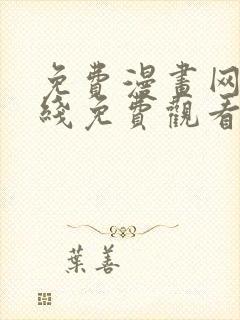 免費漫畫网
綫免費觀看
葉善